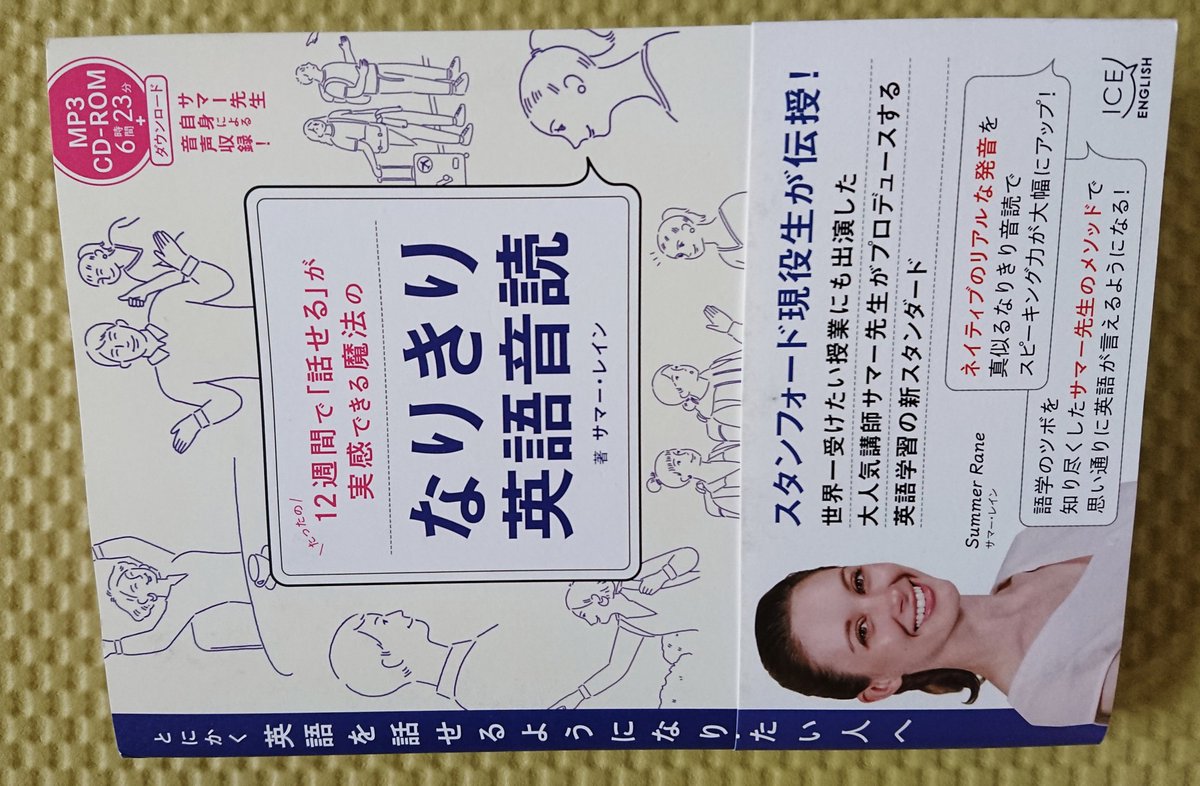 MP3
CD-ROM
6時間23分
+
ダウンロード
サマー先生
自身による
音声収録!
たったの
12週間で「話せる」が
実感できる魔法の
なりきり
英語音読
著 サマー・レイン
とにかく 英語を話せるようになりたい人へ
スタンフォード現役生が伝授!
世界一受けたい授業にも出演した
大人気講師サマー先生がプロデュースする
英語学習の新スタンダード
ICE
ENGLISH
ネイティブのリアルな発音を
真似るなりきり音読で
スピーキング力が大幅にアップ!
語学のツボを
知り尽くしたサマー先生のメソッドで
思い通りに英語が言えるようになる!
Summer Rane
サマー・レイン